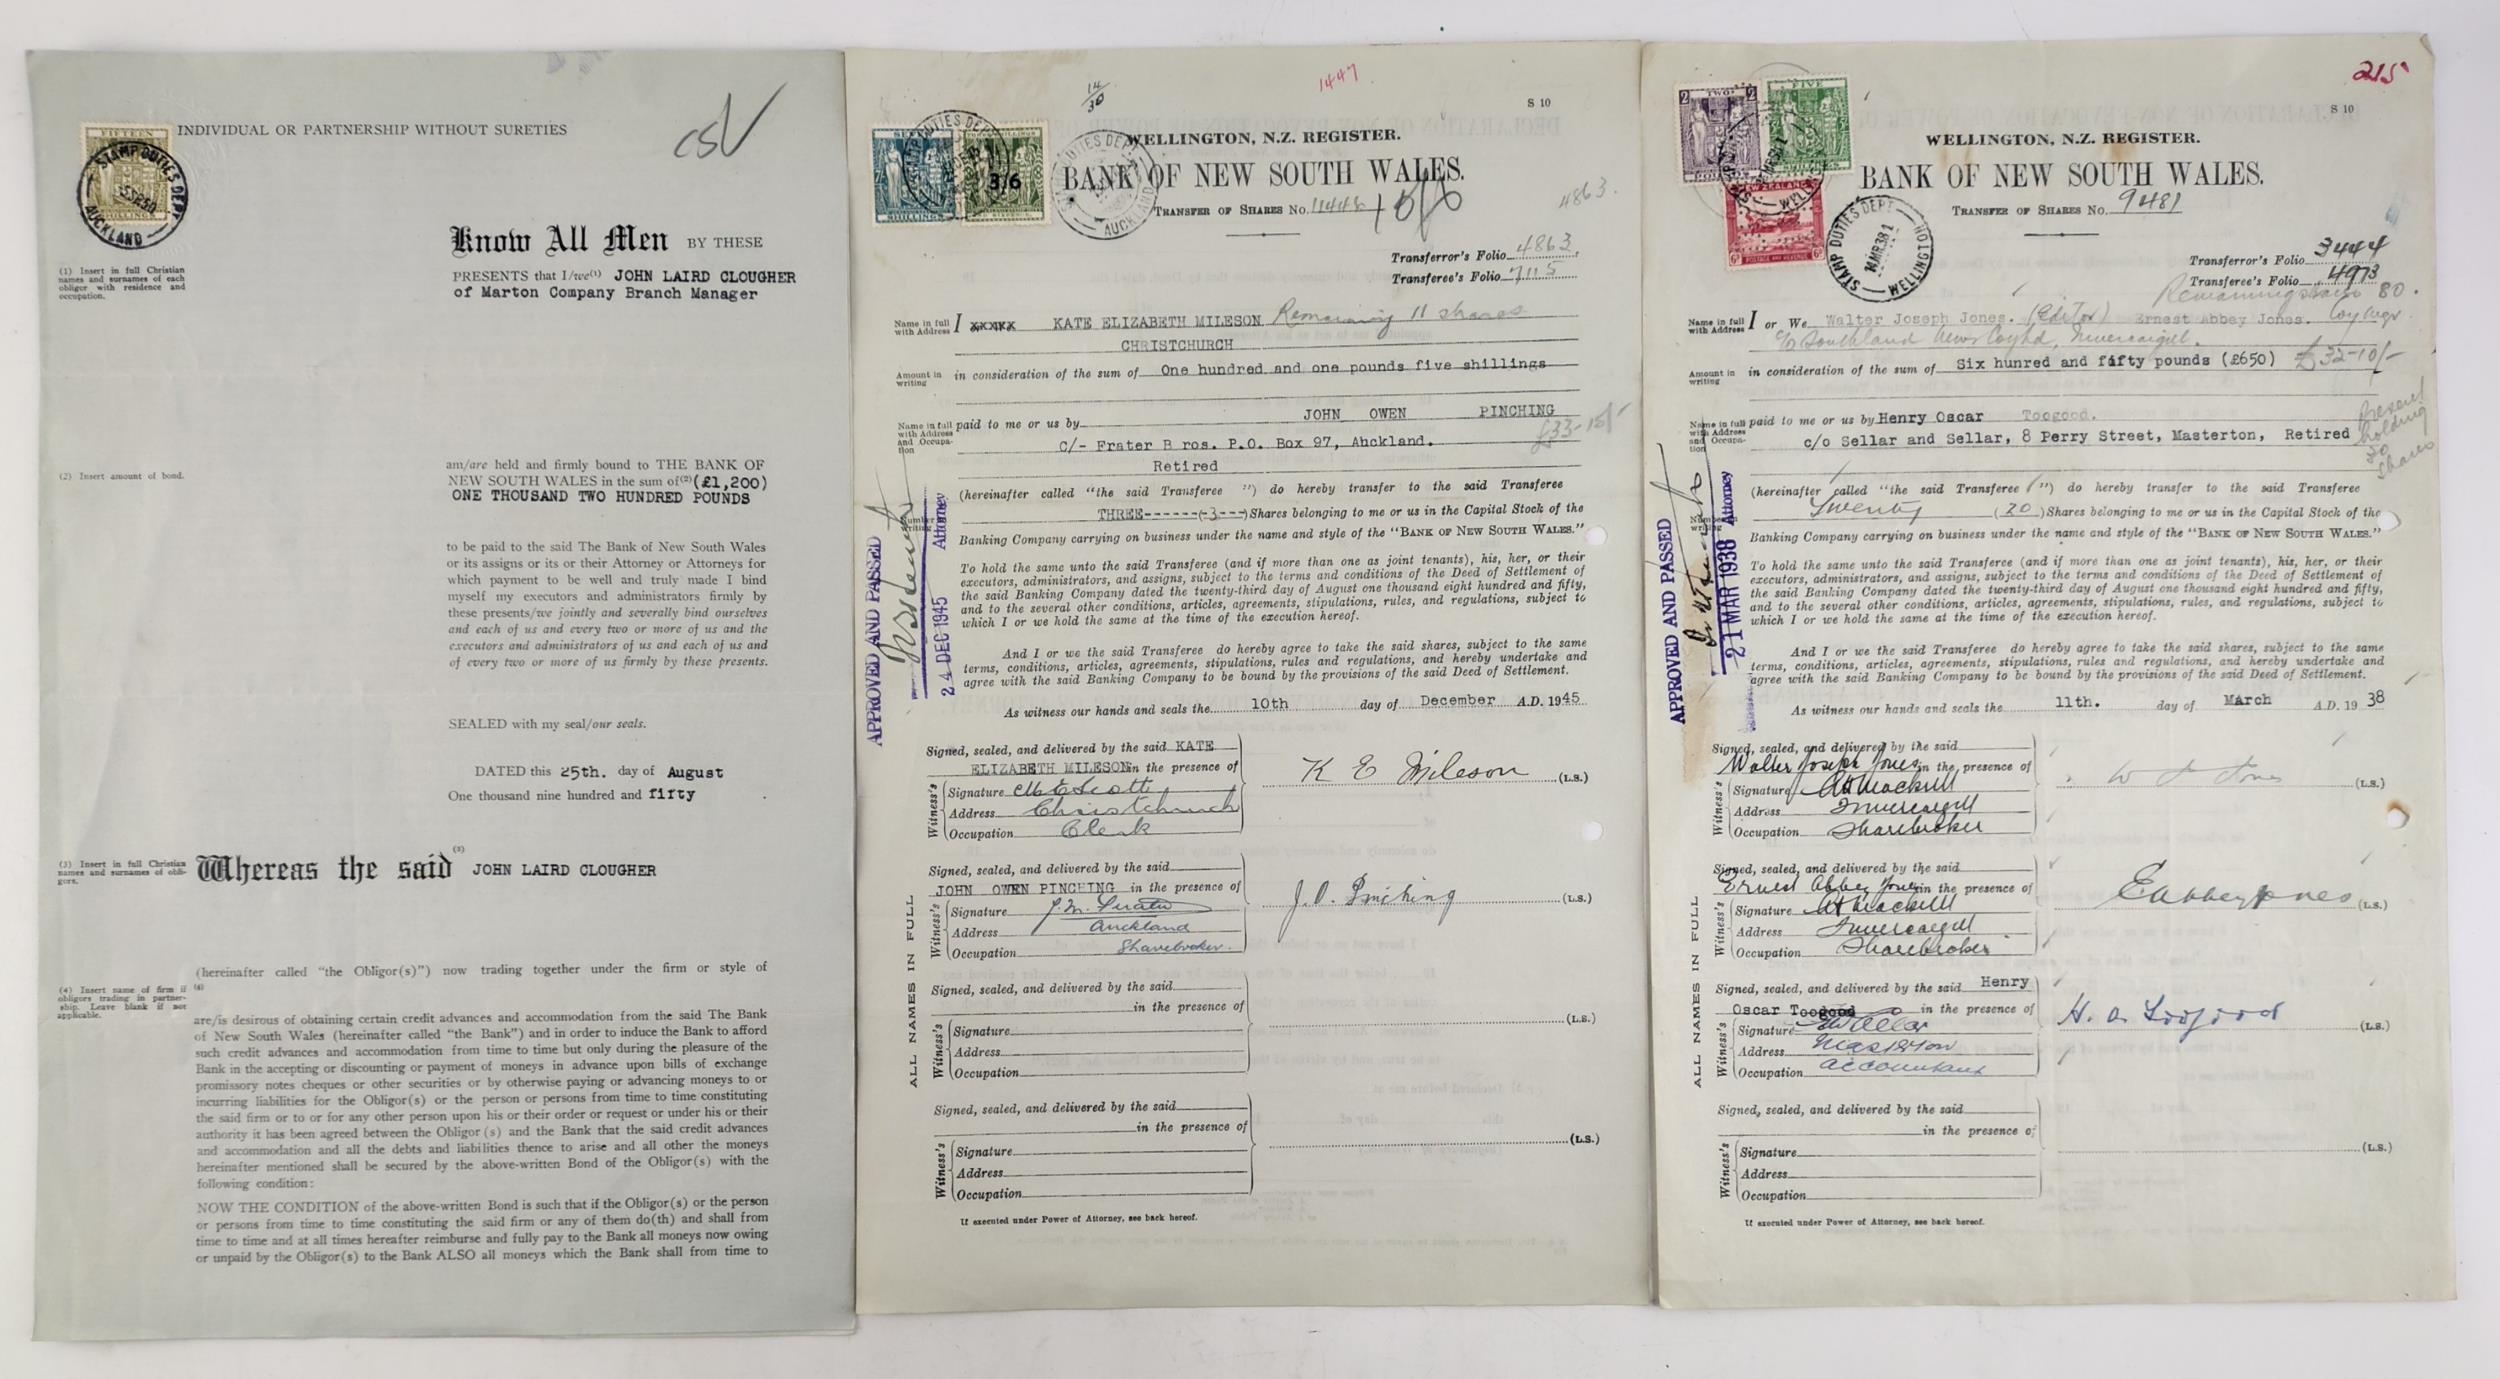 FIFTEEN
SHILLINGS
STAMP DUTIES DEPT
AUCKLAND
INDIVIDUAL OR PARTNERSHIP WITHOUT SURETIES
Know All Men BY THESE
PRESENTS that I/we(1) JOHN LAIRD CLOUGHER
of Marton Company Branch Manager
(1) Insert in full Christian
names and surnames of each
obligor with residence and
occupation.
am/are held and firmly bound to THE BANK OF
(2) Insert amount of bond.
NEW SOUTH WALES in the sum of(2)(£1,200)
ONE THOUSAND TWO HUNDRED POUNDS
to be paid to the said The Bank of New South Wales
or its assigns or its or their Attorney or Attorneys for
which payment to be well and truly made I bind
myself my executors and administrators firmly by
these presents/we jointly and severally bind ourselves
and each of us and every two or more of us and the
executors and administrators of us and each of us and
of every two or more of us firmly by these presents.
SEALED with my seal/our seals.
DATED this 25th. day of August
One thousand nine hundred and fifty
(3) Insert in full Christian
names and surnames of obli-
gors.
Whereas the said (3) JOHN LAIRD CLOUGHER
(hereinafter called "the Obligor(s)") now trading together under the firm or style of
(4) Insert name of firm if
obligors trading in partner-
ship. Leave blank if not
applicable.
(4)
are/is desirous of obtaining certain credit advances and accommodation from the said The Bank
of New South Wales (hereinafter called "the Bank") and in order to induce the Bank to afford
such credit advances and accommodation from time to time but only during the pleasure of the
Bank in the accepting or discounting or payment of moneys in advance upon bills of exchange
promissory notes cheques or other securities or by otherwise paying or advancing moneys to or
incurring liabilities for the Obligor(s) or the person or persons from time to time constituting
the said firm or to or for any other person upon his or their order or request or under his or their
authority it has been agreed between the Obligor(s) and the Bank that the said credit advances
and accommodation and all the debts and liabilities thence to arise and all other the moneys
hereinafter mentioned shall be secured by the above-written Bond of the Obligor(s) with the
following condition:
NOW THE CONDITION of the above-written Bond is such that if the Obligor(s) or the person
or persons from time to time constituting the said firm or any of them do(th) and shall from
time to time and at all times hereafter reimburse and fully pay to the Bank all moneys now owing
or unpaid by the Obligor(s) to the Bank ALSO all moneys which the Bank shall from time to
14/30
1447
S 10
SHILLINGS
3/6
STAMP DUTIES DEPT
AUCKLAND
WELLINGTON, N.Z. REGISTER.
BANK OF NEW SOUTH WALES.
TRANSFER OF SHARES No. 11448
4863.
Transferror's Folio 4863
Transferee's Folio 7115
Name in full
with Address
I xxxxx KATE ELIZABETH MILESON Remaining 11 shares
CHRISTCHURCH
Amount in
writing
in consideration of the sum of One hundred and one pounds five shillings
JOHN OWEN PINCHING
Name in full
with Address
and Occupa-
tion
paid to me or us by
£33-15/-
C/- Frater B ros. P.O. Box 97, Ahckland.
Retired
(hereinafter called "the said Transferee ") do hereby transfer to the said Transferee
THREE------(-3---)Shares belonging to me or us in the Capital Stock of the
Banking Company carrying on business under the name and style of the "BANK OF NEW SOUTH WALES."
To hold the same unto the said Transferee (and if more than one as joint tenants), his, her, or their
executors, administrators, and assigns, subject to the terms and conditions of the Deed of Settlement of
the said Banking Company dated the twenty-third day of August one thousand eight hundred and fifty,
and to the several other conditions, articles, agreements, stipulations, rules, and regulations, subject to
which I or we hold the same at the time of the execution hereof.
And I or we the said Transferee do hereby agree to take the said shares, subject to the same
terms, conditions, articles, agreements, stipulations, rules and regulations, and hereby undertake and
agree with the said Banking Company to be bound by the provisions of the said Deed of Settlement.
APPROVED AND PASSED
24 DEC 1945
Attorney
As witness our hands and seals the 10th day of December A.D. 1945
Signed, sealed, and delivered by the said KATE
ELIZABETH MILESON in the presence of
K E Mileson (L.S.)
Witness's
Signature
Address Christchurch
Occupation Clerk
Signed, sealed, and delivered by the said
JOHN OWEN PINCHING in the presence of
J. O. Pinching (L.S.)
Witness's
Signature
Address Auckland
Occupation Sharebroker.
ALL NAMES IN FULL
Signed, sealed, and delivered by the said
in the presence of
(L.S.)
Witness's
Signature
Address
Occupation
Signed, sealed, and delivered by the said
in the presence of
(L.S.)
Witness's
Signature
Address
Occupation
If executed under Power of Attorney, see back hereof.
215
S 10
2 TWO 2
FIVE
NEW ZEALAND
POSTAGE AND REVENUE
STAMP DUTIES DEPT
14 MR 38 1
WELLINGTON
WELLINGTON, N.Z. REGISTER.
BANK OF NEW SOUTH WALES.
TRANSFER OF SHARES No. 9481
Transferror's Folio 3444
Transferee's Folio 4973
Remaining 80.
Name in full
with Address
I or We Walter Joseph Jones. (Editor) Ernest Abbey Jones. Coy Mgr.
c/o Southland News Coy Ltd, Invercargill.
Amount in
writing
in consideration of the sum of Six hunred and fifty pounds (£650) £32-10/-
Name in full
with Address
and Occupa-
tion
paid to me or us by Henry Oscar Toogood.
c/o Sellar and Sellar, 8 Perry Street, Masterton, Retired
Present
holding
20
shares
(hereinafter called "the said Transferee ") do hereby transfer to the said Transferee
Twenty (20)Shares belonging to me or us in the Capital Stock of the
Banking Company carrying on business under the name and style of the "BANK OF NEW SOUTH WALES."
To hold the same unto the said Transferee (and if more than one as joint tenants), his, her, or their
executors, administrators, and assigns, subject to the terms and conditions of the Deed of Settlement of
the said Banking Company dated the twenty-third day of August one thousand eight hundred and fifty,
and to the several other conditions, articles, agreements, stipulations, rules, and regulations, subject to
which I or we hold the same at the time of the execution hereof.
And I or we the said Transferee do hereby agree to take the said shares, subject to the same
terms, conditions, articles, agreements, stipulations, rules and regulations, and hereby undertake and
agree with the said Banking Company to be bound by the provisions of the said Deed of Settlement.
APPROVED AND PASSED
21 MAR 1938
Attorney
As witness our hands and seals the 11th. day of March A.D. 19 38
Signed, sealed, and delivered by the said
Walter Joseph Jones in the presence of
W J Jones (L.S.)
Witness's
Signature
Address Invercargill
Occupation Sharebroker
Signed, sealed, and delivered by the said
Ernest Abbey Jones in the presence of
E Abbey Jones (L.S.)
Witness's
Signature
Address Invercargill
Occupation Sharebroker
ALL NAMES IN FULL
Signed, sealed, and delivered by the said Henry
Oscar Toogood in the presence of
H. O. Toogood (L.S.)
Signature
Address Masterton
Occupation Accountant
Signed, sealed, and delivered by the said
in the presence of
(L.S.)
Witness's
Signature
Address
Occupation
If executed under Power of Attorney, see back hereof.